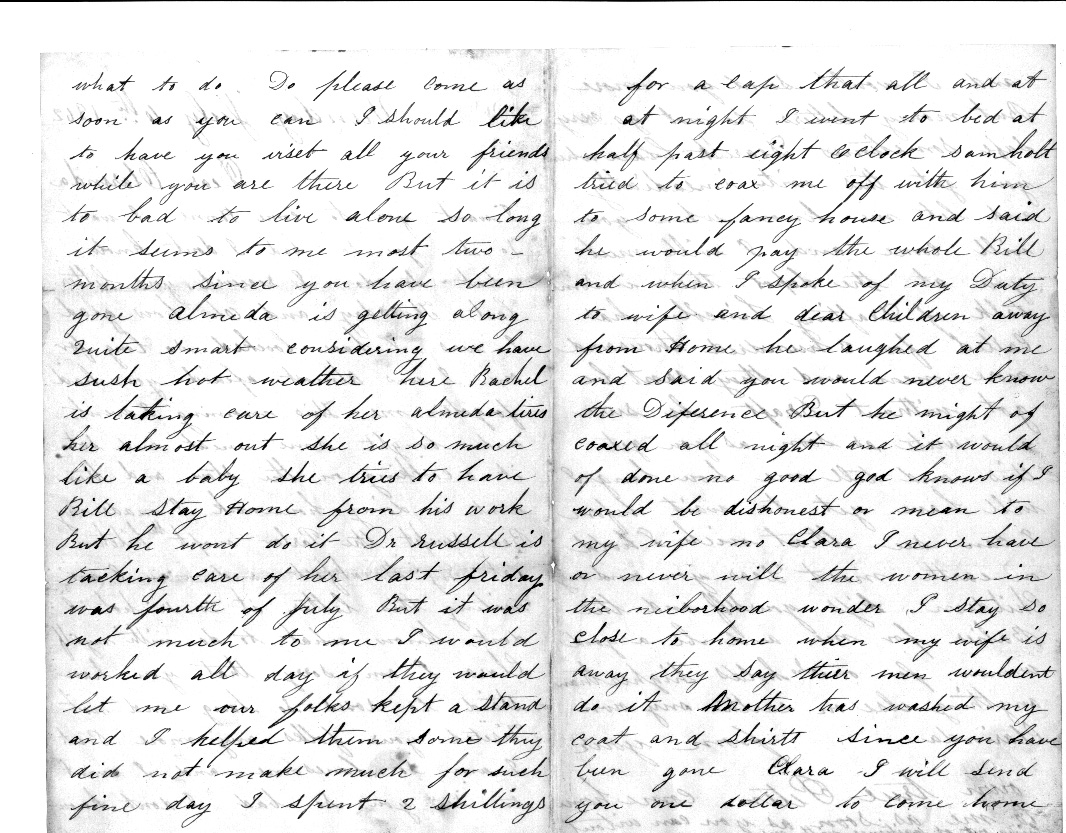 what to do Do please come as
soon as you can I should like
to have you viset all your friends
while you are there But it is
to bad to live alone so long
it seems to me most two -
months since you have been
gone almeda is getting along
quite smart considering we have
sush hot weather here Rachel
is taking care of her almeda tires
her almost out she is so much
like a baby she tries to have
Bill stay Home from his work
But he wont do it Dr Russell is
tacking care of her last friday
was fourth of july But it was
not much to me I would
worked all day if they would
let me our folks kept a stand
and I helped them some they
did not make much for such
fine day I spent 2 shillings
for a cap that all and at
at night I went to bed at
half past eight Oclock sam holt
tried to coax me off with him
to some fancy house and said
he would pay the whole Bill
and when I spoke of my Duty
to wife and dear Children away
from Home he laughed at me
and said you would never know
the Diference But he might of
coaxed all night and it would
of done no good god knows if I
would be dishonest or mean to
my wife no Clara I never have
or never will the women in
the neiborhood wonder I stay so
close to home when my wife is
away they say thier men wouldent
do it Mother has washed my
coat and shirts since you have
been gone Clara I will send
you one dollar to come home